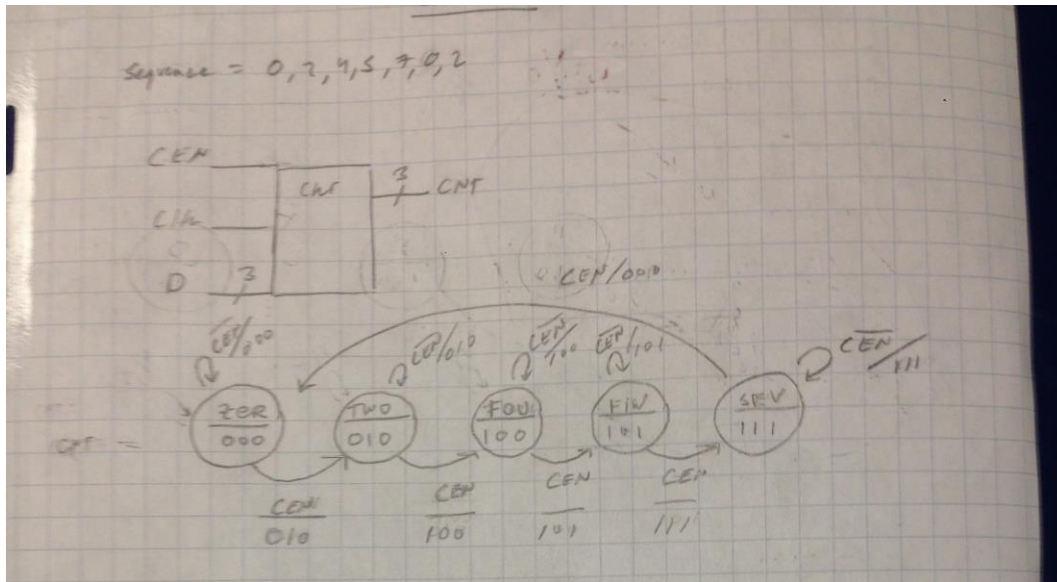 Sequence = 0, 2, 4, 5, 7, 0, 2
CEN
CNT
3
CNT
Clk
D
3
CEN/000
C̅E̅N̅/000
C̅E̅N̅/010
C̅E̅N̅/100
C̅E̅N̅/101
C̅E̅N̅/111
ZER
000
TWO
010
FOU
100
FIV
101
SEV
111
CEN
010
CEN
100
CEN
101
CEN
111